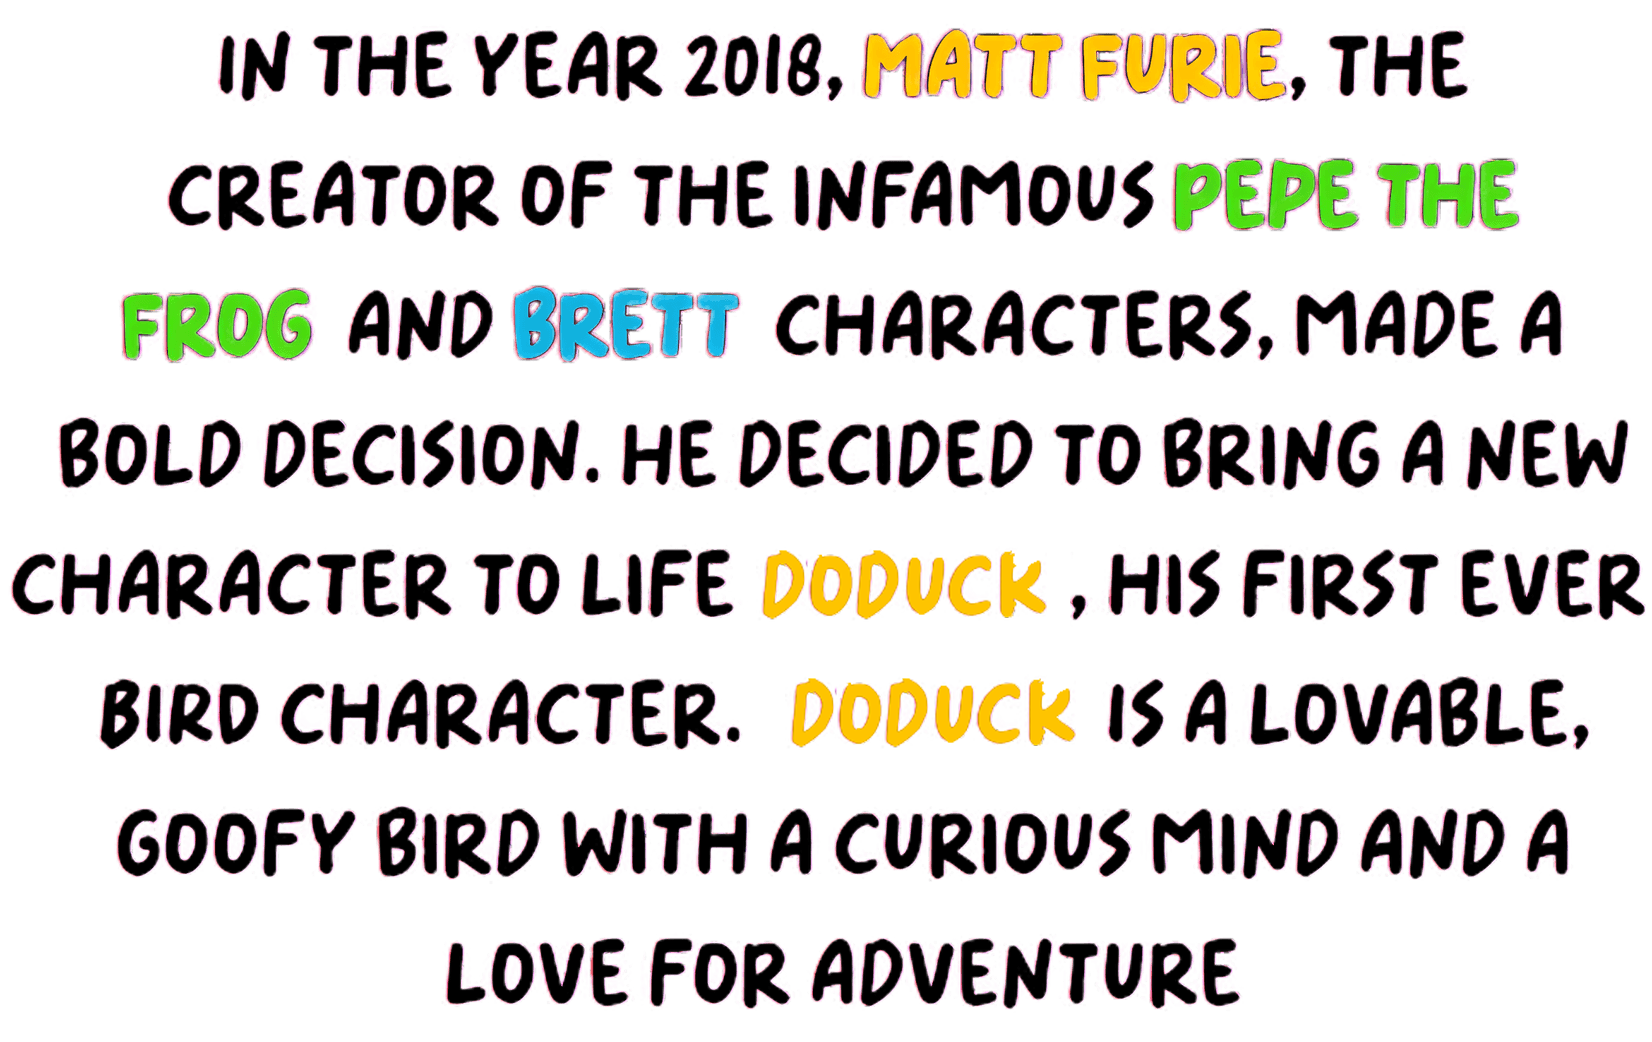 IN THE YEAR 2018, MATT FURIE, THE
CREATOR OF THE INFAMOUS PEPE THE
FROG AND BRETT CHARACTERS, MADE A
BOLD DECISION. HE DECIDED TO BRING A NEW
CHARACTER TO LIFE DODUCK , HIS FIRST EVER
BIRD CHARACTER. DODUCK IS A LOVABLE,
GOOFY BIRD WITH A CURIOUS MIND AND A
LOVE FOR ADVENTURE